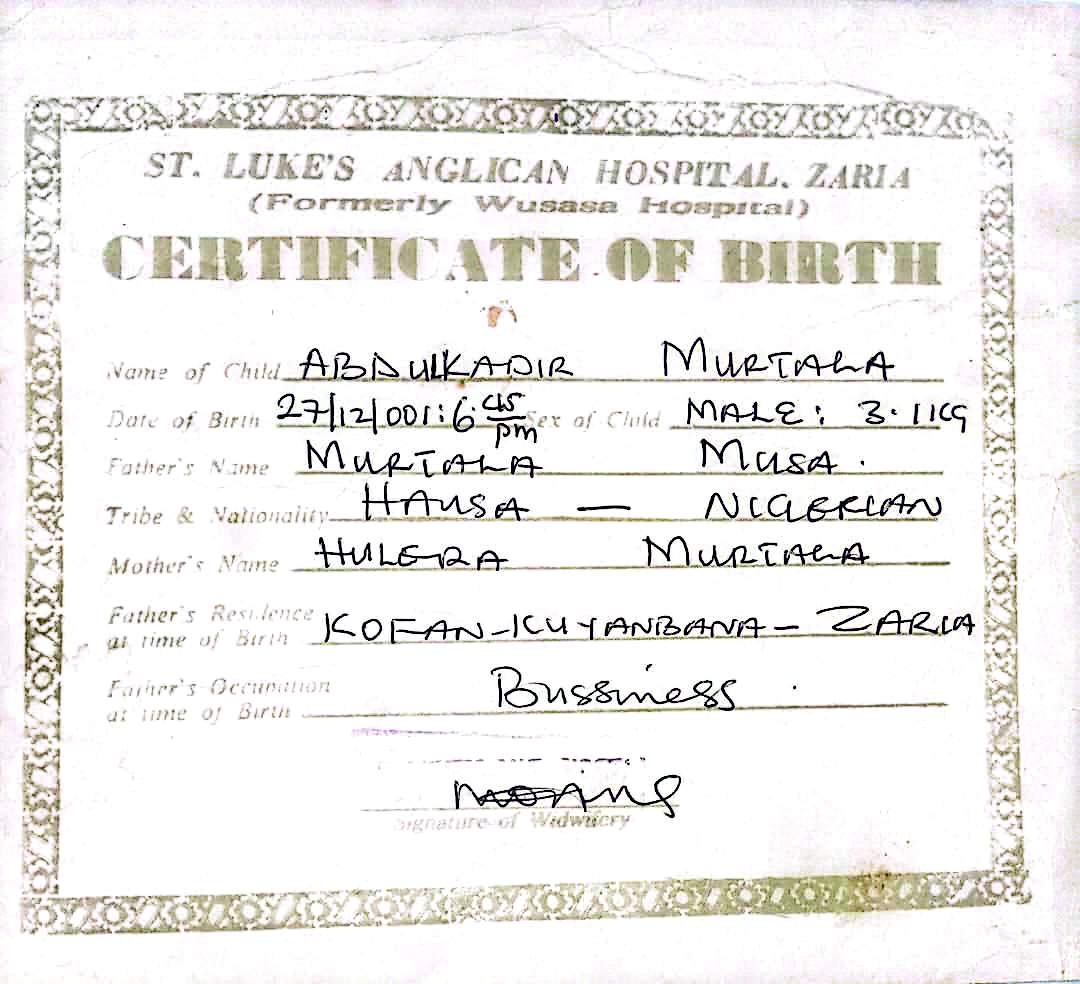 ST. LUKE'S ANGLICAN HOSPITAL, ZARIA
(Formerly Wusasa Hospital)
CERTIFICATE OF BIRTH
Name of Child ABDULKADIR MURTALA
Date of Birth 27/12/001: 6. pm Sex of Child MALE: 3.1KG
Father's Name MURTALA MUSA.
Tribe & Nationality HAUSA — NIGERIAN
Mother's Name HULERA MURTALA
Father's Residence
at time of Birth KOFAN-KUYANBANA - ZARIA
Father's Occupation
at time of Birth Bussiness
Signature of Widwifery